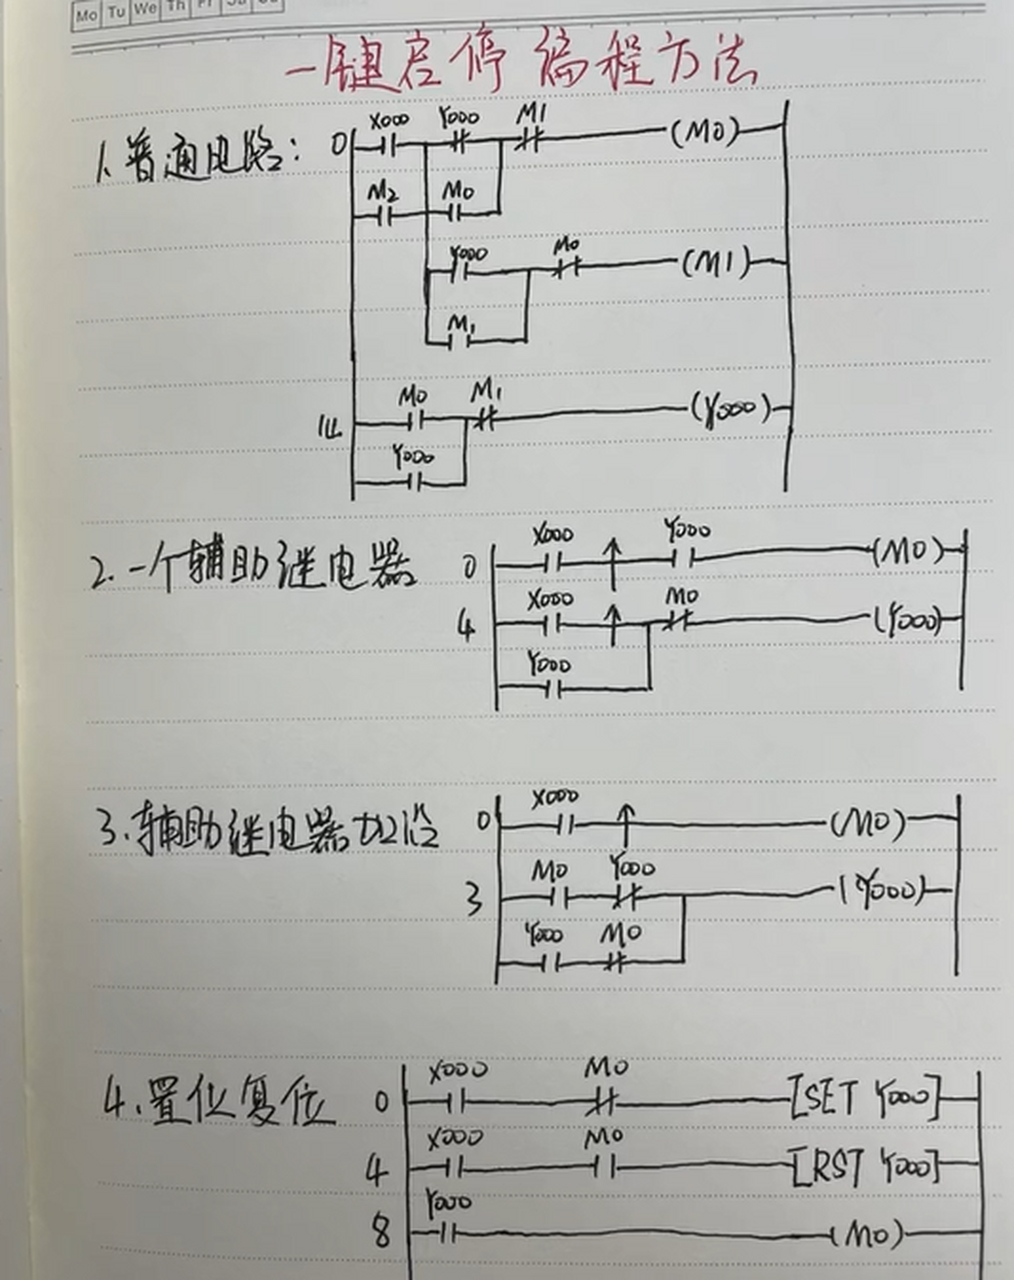 Mo Tu We Th Fr Sa Su
一键启停编程方法
1.普通电路:
0 X000 Y000 M1 (M0)
M2 M0
Y000 M0 (M1)
M1
14 M0 M1 (Y000)
Y000
2.一个辅助继电器
0 X000 ↑ Y000 (M0)
4 X000 ↑ M0 (Y000)
Y000
3.辅助继电器边沿
0 X000 ↑ (M0)
3 M0 Y000 (Y000)
Y000 M0
4.置位复位
0 X000 M0 [SET Y000]
4 X000 M0 [RST Y000]
8 Y000 (M0)